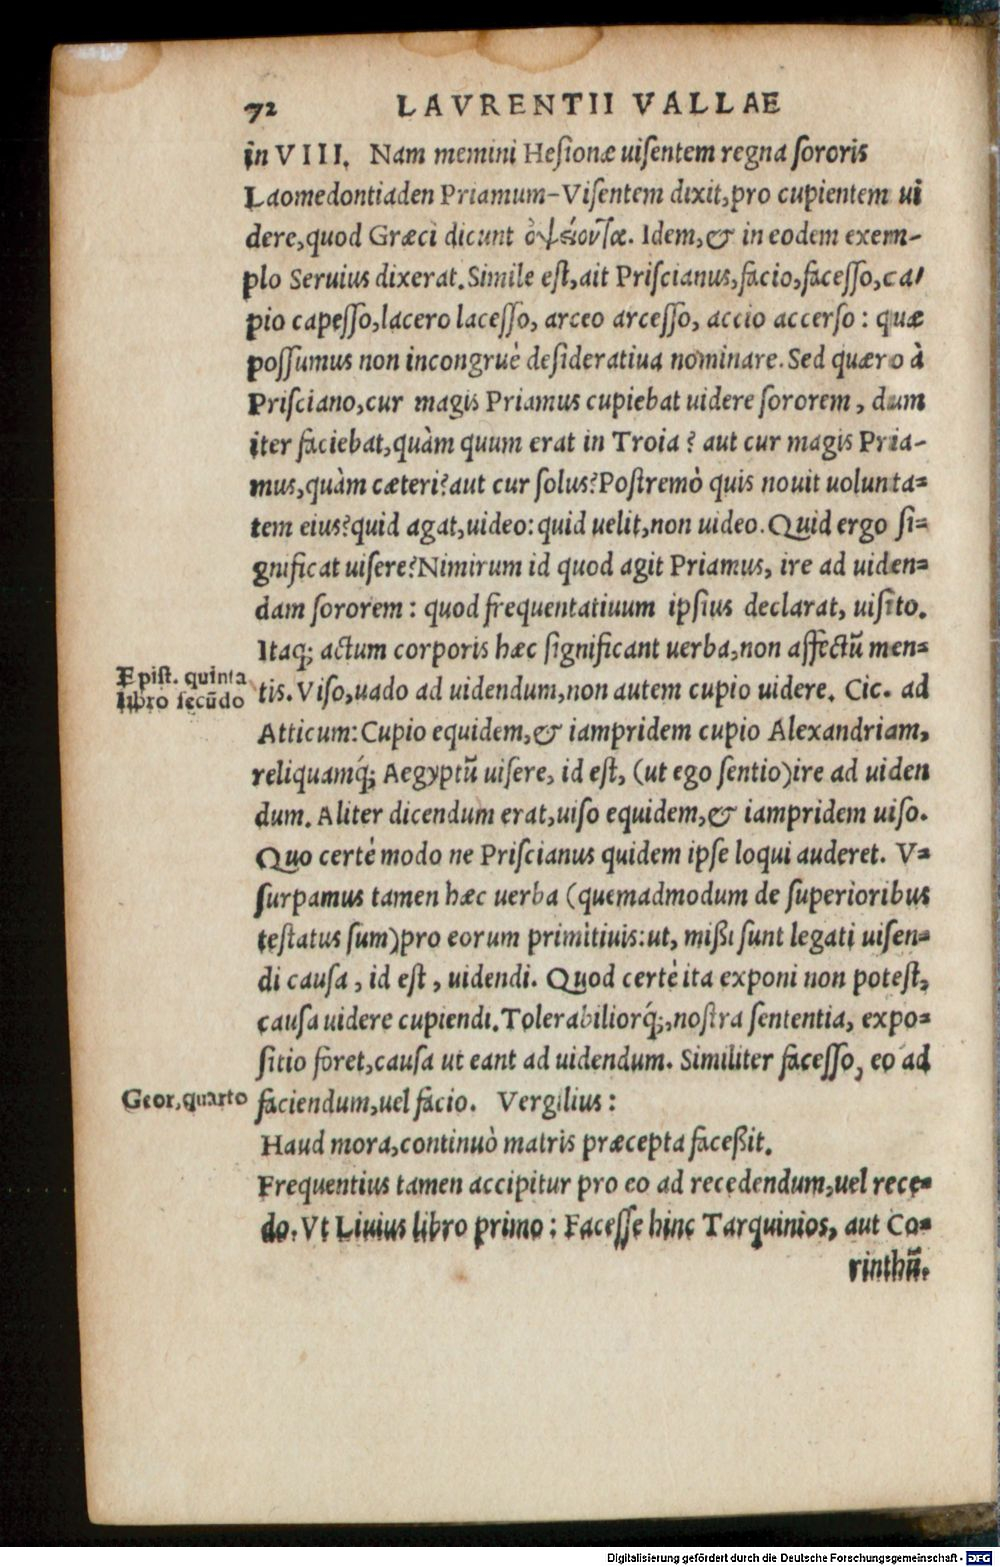 72 LAVRENTII VALLAE
in VIII. Nam memini Hesionæ uisentem regna sororis
Laomedontiaden Priamum-Visentem dixit, pro cupientem ui
dere, quod Græci dicunt ὀψείοντα. Idem, & in eodem exem-
plo Seruius dixerat. Simile est, ait Priscianus, facio, facesso, ca-
pio capesso, lacero lacesso, arceo arcesso, accio accerso: quæ
possumus non incongruè desideratiua nominare. Sed quæro à
Prisciano, cur magis Priamus cupiebat uidere sororem, dum
iter faciebat, quàm quum erat in Troia? aut cur magis Pria-
mus, quàm cæteri? aut cur solus? Postremò quis nouit uolunta=
tem eius? quid agat, uideo: quid uelit, non uideo. Quid ergo si=
gnificat uisere? Nimirum id quod agit Priamus, ire ad uiden=
dam sororem: quod frequentatiuum ipsius declarat, uisito.
Itaq; actum corporis hæc significant uerba, non affectū men=
Epist. quinta
libro secūdo
tis. Viso, uado ad uidendum, non autem cupio uidere. Cic. ad
Atticum: Cupio equidem, & iampridem cupio Alexandriam,
reliquamq́; Aegyptū uisere, id est, (ut ego sentio) ire ad uiden
dum. Aliter dicendum erat, uiso equidem, & iampridem uiso.
Quo certè modo ne Priscianus quidem ipse loqui auderet. V=
surpamus tamen hæc uerba (quemadmodum de superioribus
testatus sum) pro eorum primitiuis: ut, mißi sunt legati uisen=
di causa, id est, uidendi. Quod certè ita exponi non potest,
causa uidere cupiendi. Tolerabiliorq́;, nostra sententia, expo=
sitio foret, causa ut eant ad uidendum. Similiter facesso, eo ad
Geor. quarto
faciendum, uel facio. Vergilius:
Haud mora, continuò matris præcepta faceßit.
Frequentius tamen accipitur pro eo ad recedendum, uel rece=
do. Vt Liuius libro primo: Facesse hinc Tarquinios, aut Co=
rinthū.
Digitalisierung gefördert durch die Deutsche Forschungsgemeinschaft - DFG